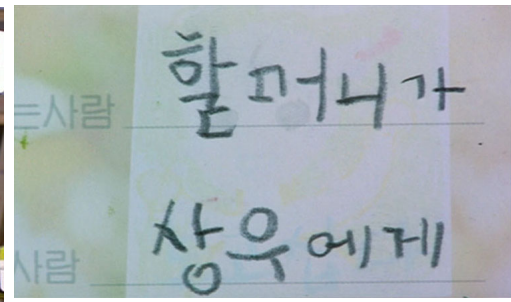 는사람 할머니가
사람 상우에게